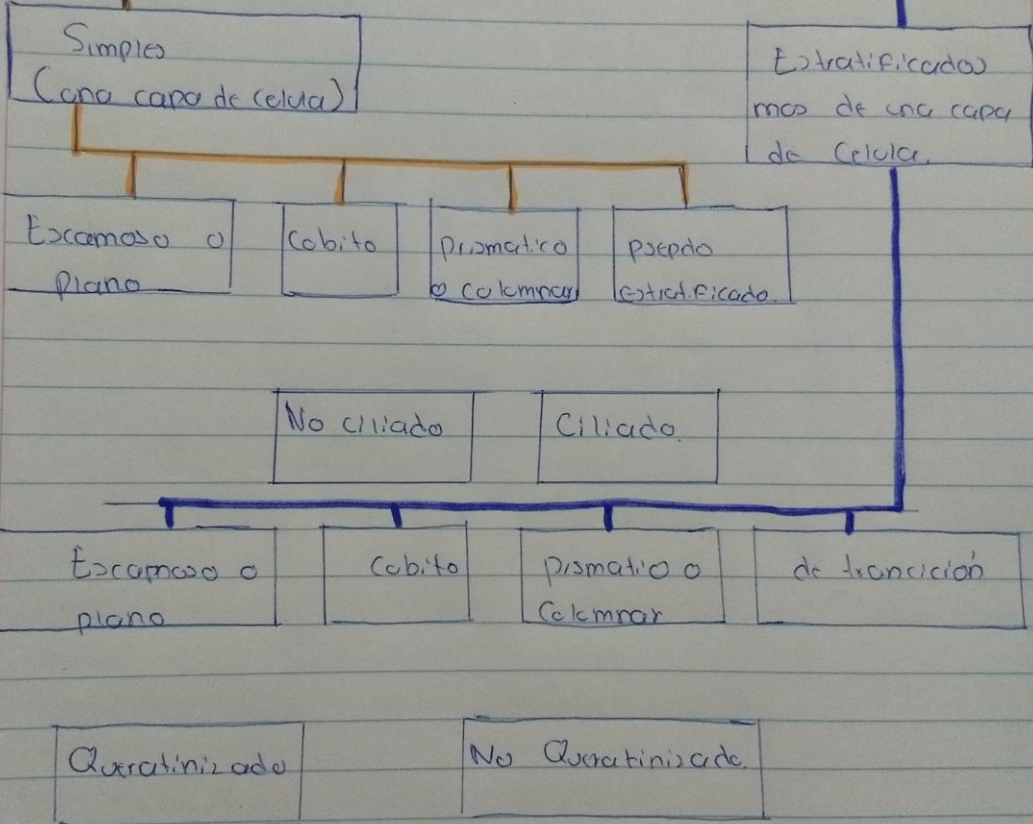 Simples
(una capa de celula)
Estratificados
mas de una capa
de celula.
Escamoso o
plano
Cubito
prismatico
o columnar
psepdo
estratificado.
No ciliado
Ciliado.
Escamoso o
plano
Cubito
prismatio o
Columnar
de trancición
Queratinizado
No Queratinizado.